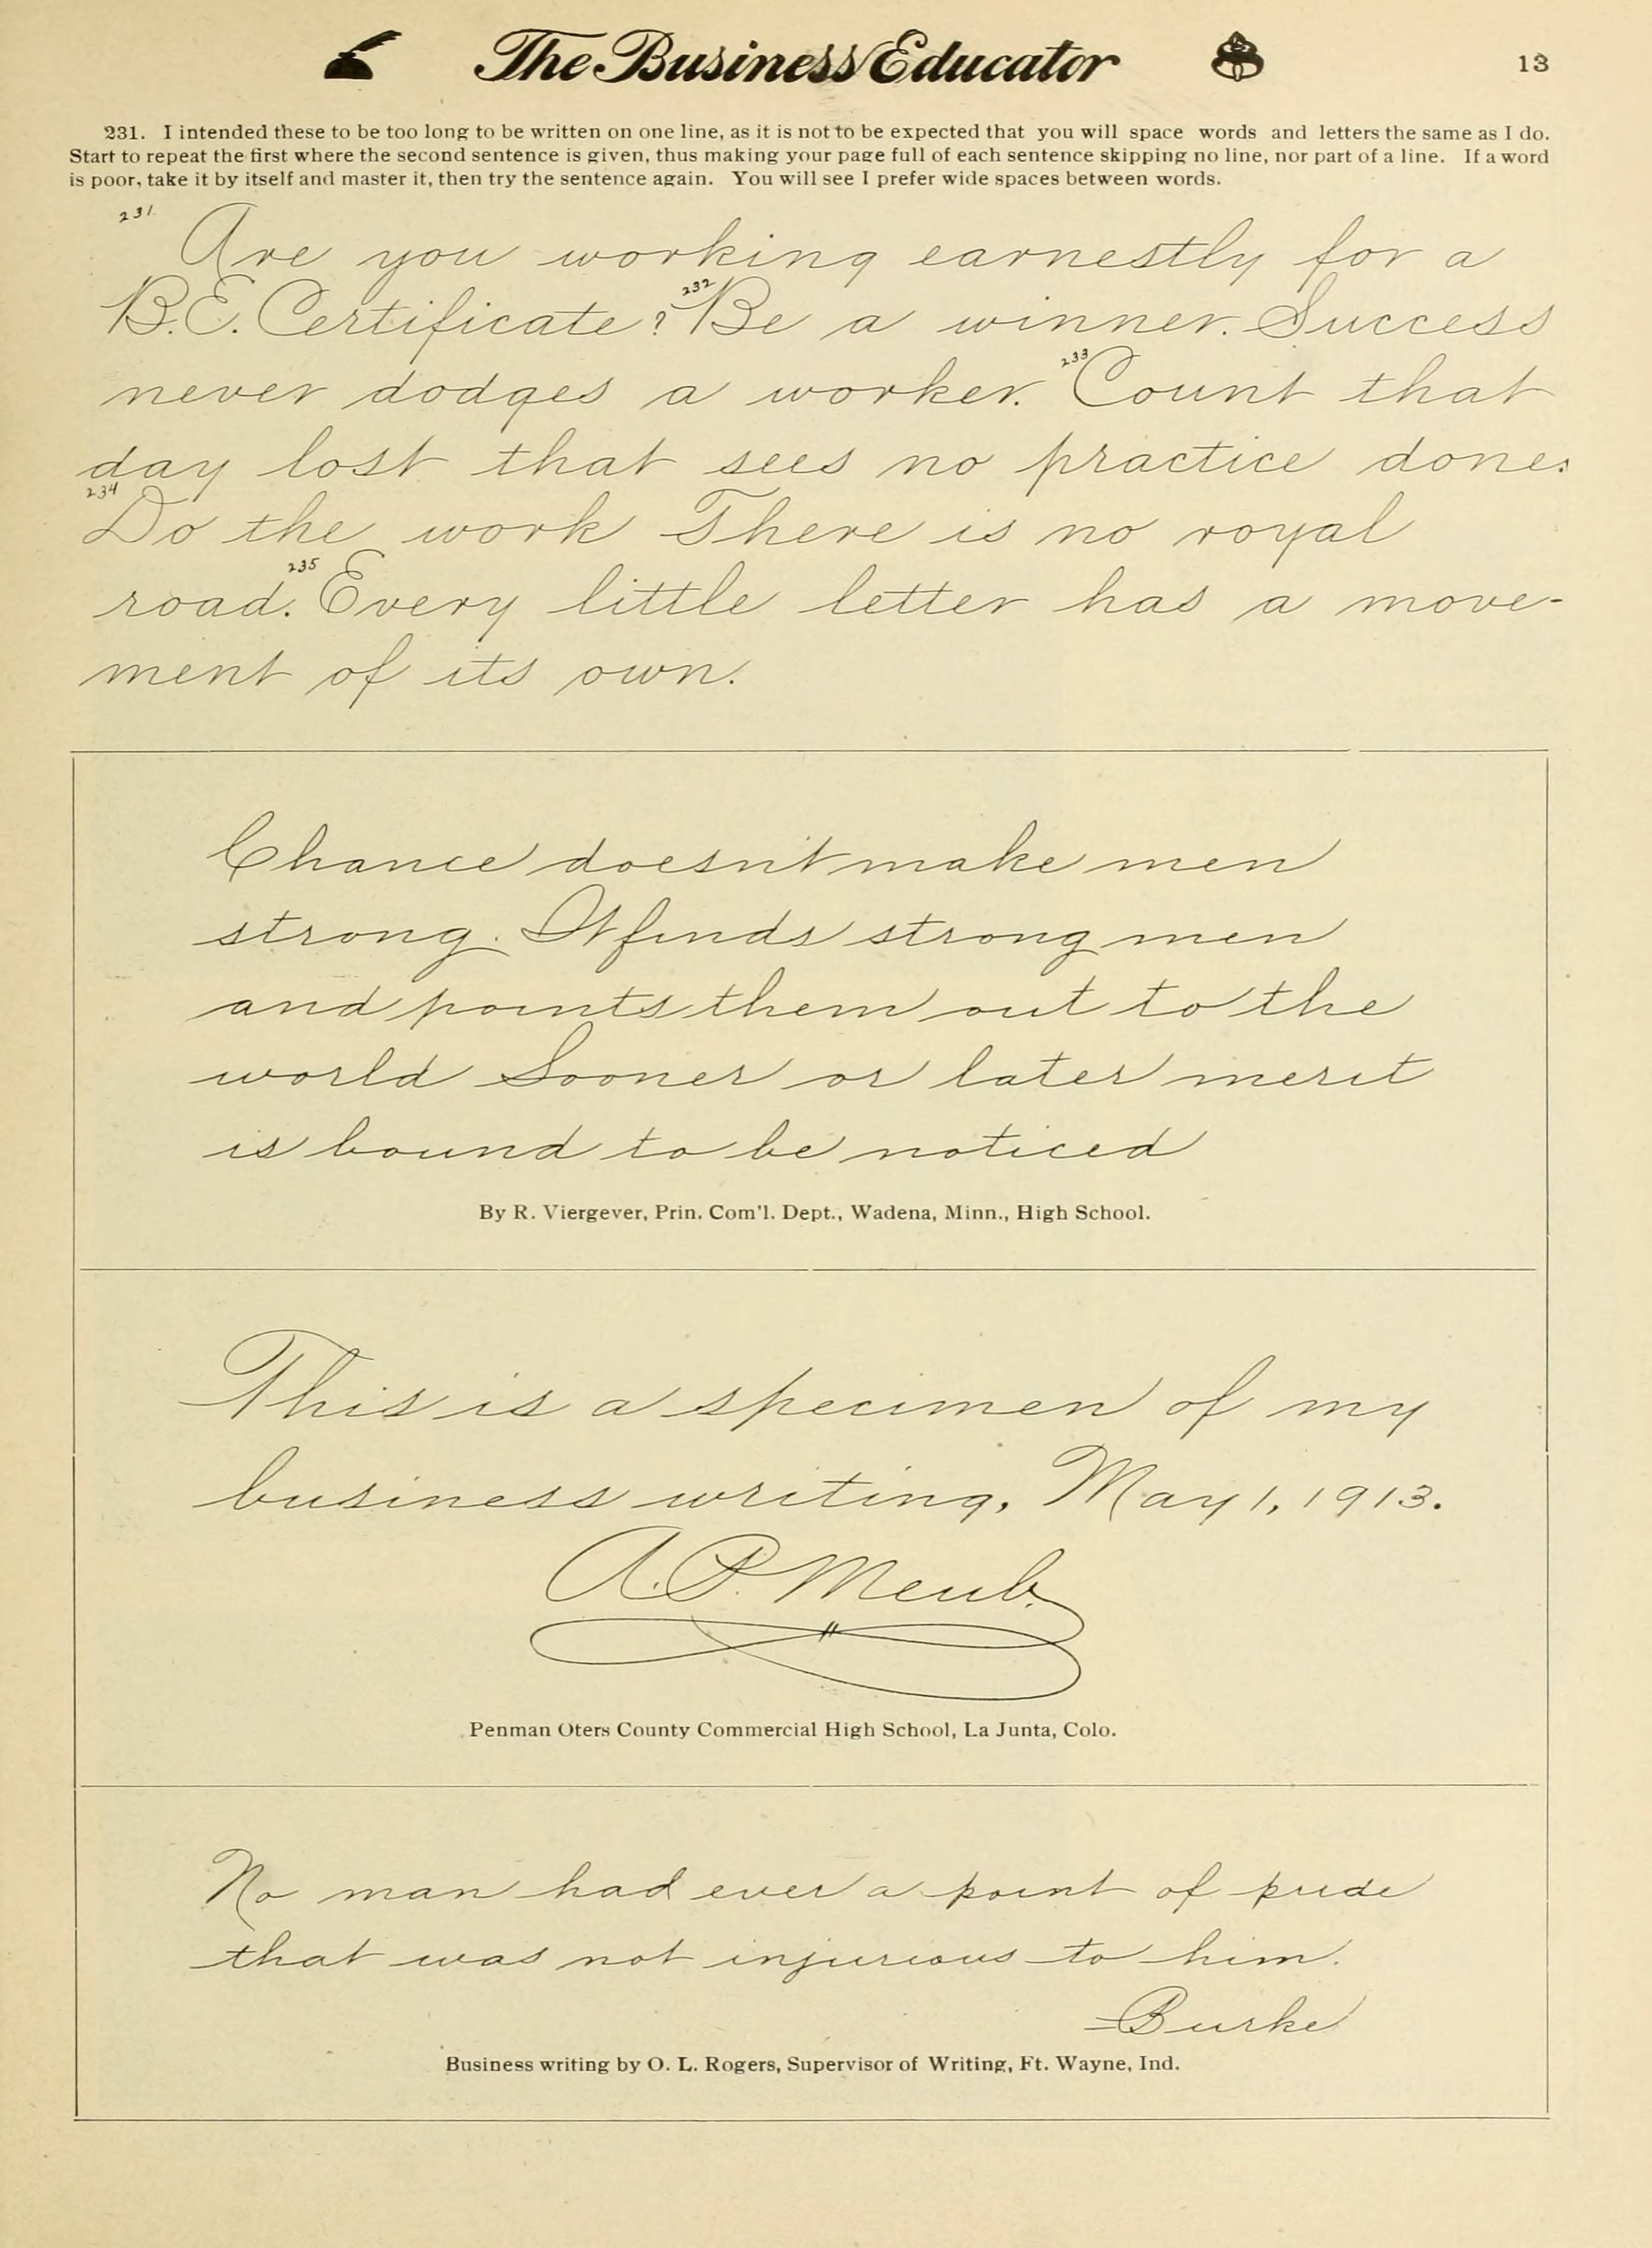 The Business Educator
13
231. I intended these to be too long to be written on one line, as it is not to be expected that you will space words and letters the same as I do.
Start to repeat the first where the second sentence is given, thus making your page full of each sentence skipping no line, nor part of a line. If a word
is poor, take it by itself and master it, then try the sentence again. You will see I prefer wide spaces between words.
231. Are you working earnestly for a
B.E. Certificate? 232 Be a winner. Success
never dodges a worker. 233 Count that
day lost that sees no practice done.
234 Do the work There is no royal
road. 235 Every little letter has a move-
ment of its own.
Chance doesn't make men
strong. It finds strong men
and points them out to the
world Sooner or later merit
is bound to be noticed
By R. Viergever, Prin. Com'l. Dept., Wadena, Minn., High School.
This is a specimen of my
business writing, May 1, 1913.
A. P. Meub.
Penman Oters County Commercial High School, La Junta, Colo.
No man had ever a point of pride
that was not injurious to him.
=Burke
Business writing by O. L. Rogers, Supervisor of Writing, Ft. Wayne, Ind.